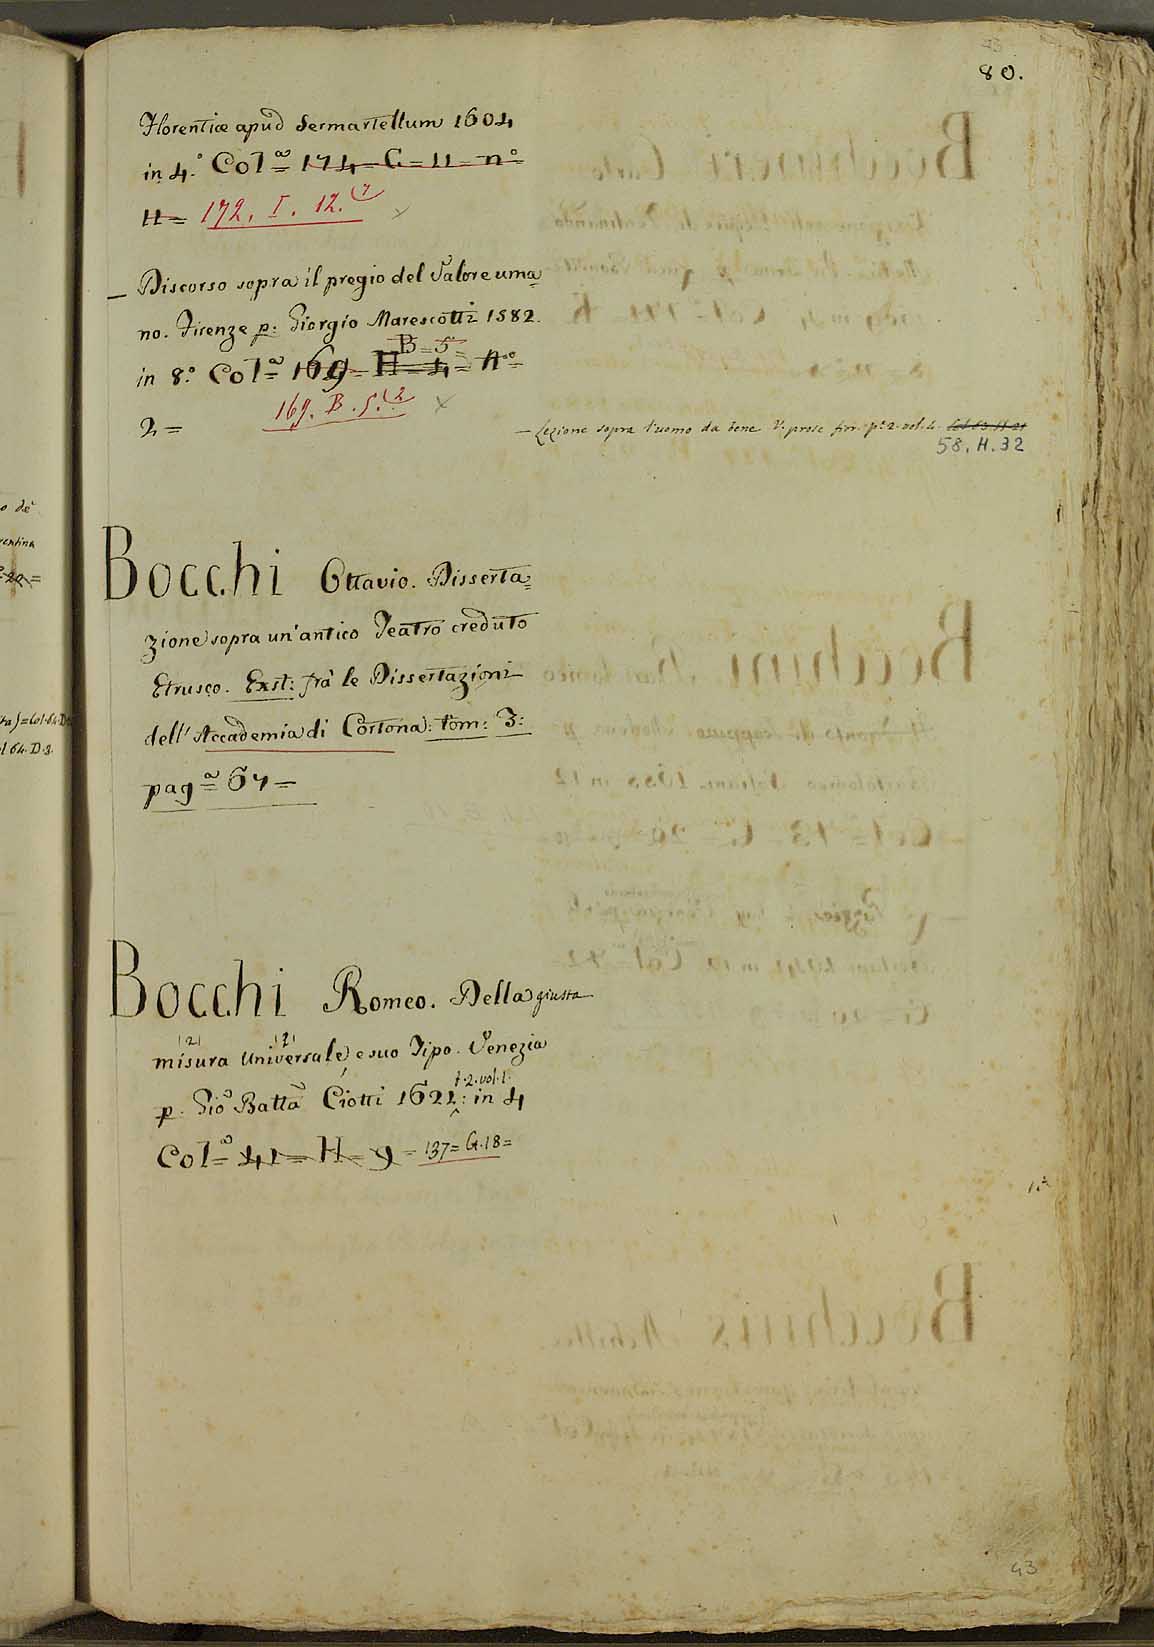 80.
Florentiæ apud Sermartellum 1604
in 4.° Col.ª= 174= G= 11= n°=
11= 172. I. 12.(7
– Discorso sopra il pregio del Valore uma=
no. Firenze p: Giorgio Marescotti 1582.
B=5=
in 8.° Col.ª= 169= H= 4= n°=
2= 169. B. 5.(2
– Lezione sopra l'uomo da bene V. prose fior. p.e 2. vol. 4. Col 63. H. 21
58. H. 32
Bocchi Ottavio. Disserta=
zione sopra un'antico Teatro creduto
Etrusco. Exst: frà le Dissertazioni
dell'Accademia di Cortona: tom: 3:
pag.ª= 67=
Bocchi Romeo. Della giusta
(2) (2)
misura universale, e suo Tipo. Venezia
t. 2. vol. 1.
p. Gio Batta Ciotti 1621: in 4
Col.ª= 41= H= 9= 137= G. 18=
43